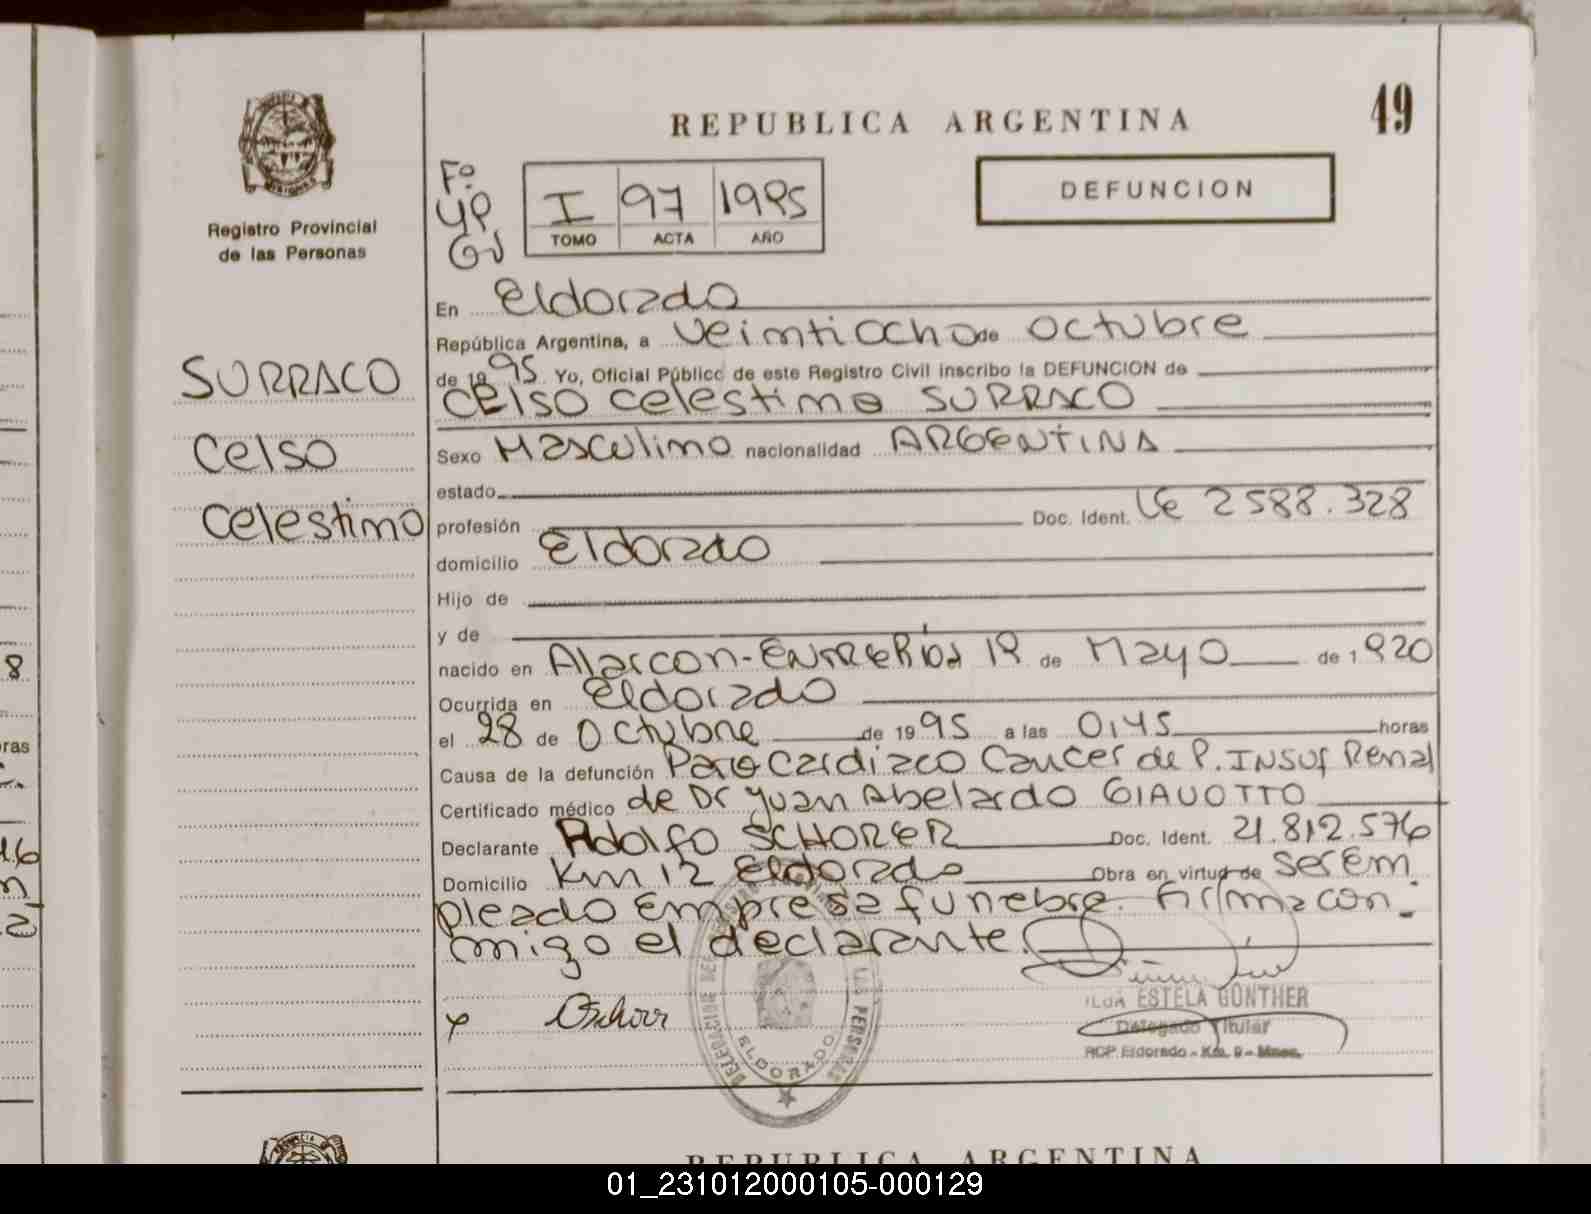 49
REPUBLICA ARGENTINA
DEFUNCION
Registro Provincial
de las Personas
Fº
I 97 1995
TOMO ACTA AÑO
SURRACO
Celso
Celestino
En Eldorado
República Argentina, a veintiocho de octubre
de 1995 Yo, Oficial Público de este Registro Civil inscribo la DEFUNCION de
Celso Celestino SURRACO
Sexo Masculino nacionalidad ARGENTINA
estado
profesión Doc. Ident. LE 2588.328
domicilio Eldorado
Hijo de
y de
nacido en Alarcon-ENTRERíos 19 de Mayo de 1920
Ocurrida en Eldorado
el 28 de Octubre de 1995 a las 0,45 horas
Causa de la defunción Paro Cardiaco Cancer de P. INSuf Renal
Certificado médico de Dr Juan Abelardo GIAVOTTO
Declarante Adolfo SCHORER Doc. Ident. 21.812.576
Domicilio Km 12 Eldorado Obra en virtud de ser em
pleado Empresa funebre. Firma con-
migo el declarante.
ESTELA GUNTHER
Delegado Titular
RCP. Eldorado - Km. 9 - Mnes.
ELDORADO
REPUBLICA ARGENTINA
01_231012000105-000129